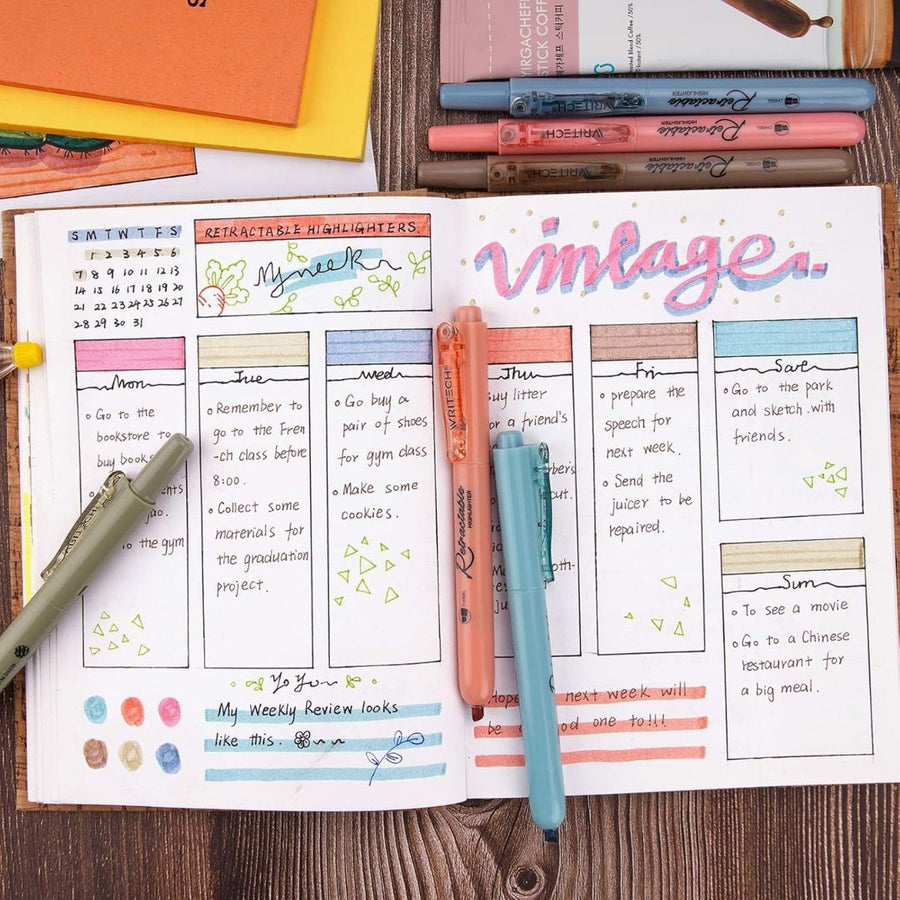 YIRGACHEFFE
STICK COFFEE
WRITECH Retractable HIGHLIGHTER CHISEL
WRITECH Retractable HIGHLIGHTER CHISEL
WRITECH Retractable HIGHLIGHTER CHISEL
S M T W T F S
1 2 3 4 5 6
7 8 9 10 11 12 13
14 15 16 17 18 19 20
21 22 23 24 25 26 27
28 29 30 31
RETRACTABLE HIGHLIGHTERS
My week
Vintage
Mon
Go to the
bookstore to
buy books
to the gym
Tue
Remember to
go to the Fren
-ch class before
8:00.
Collect some
materials for
the graduation
project.
Wed
Go buy a
pair of shoes
for gym class
Make some
cookies.
Thu
buy litter
for a friend's
Fri
prepare the
speech for
next week.
Send the
juicer to be
repaired.
Sat
Go to the park
and sketch with
friends.
Sun
To see a movie
Go to a Chinese
restaurant for
a big meal.
WRITECH
Retractable
HIGHLIGHTER
CHISEL
Yo You
My Weekly Review looks
like this.
Hope next week will
be good one to!!!